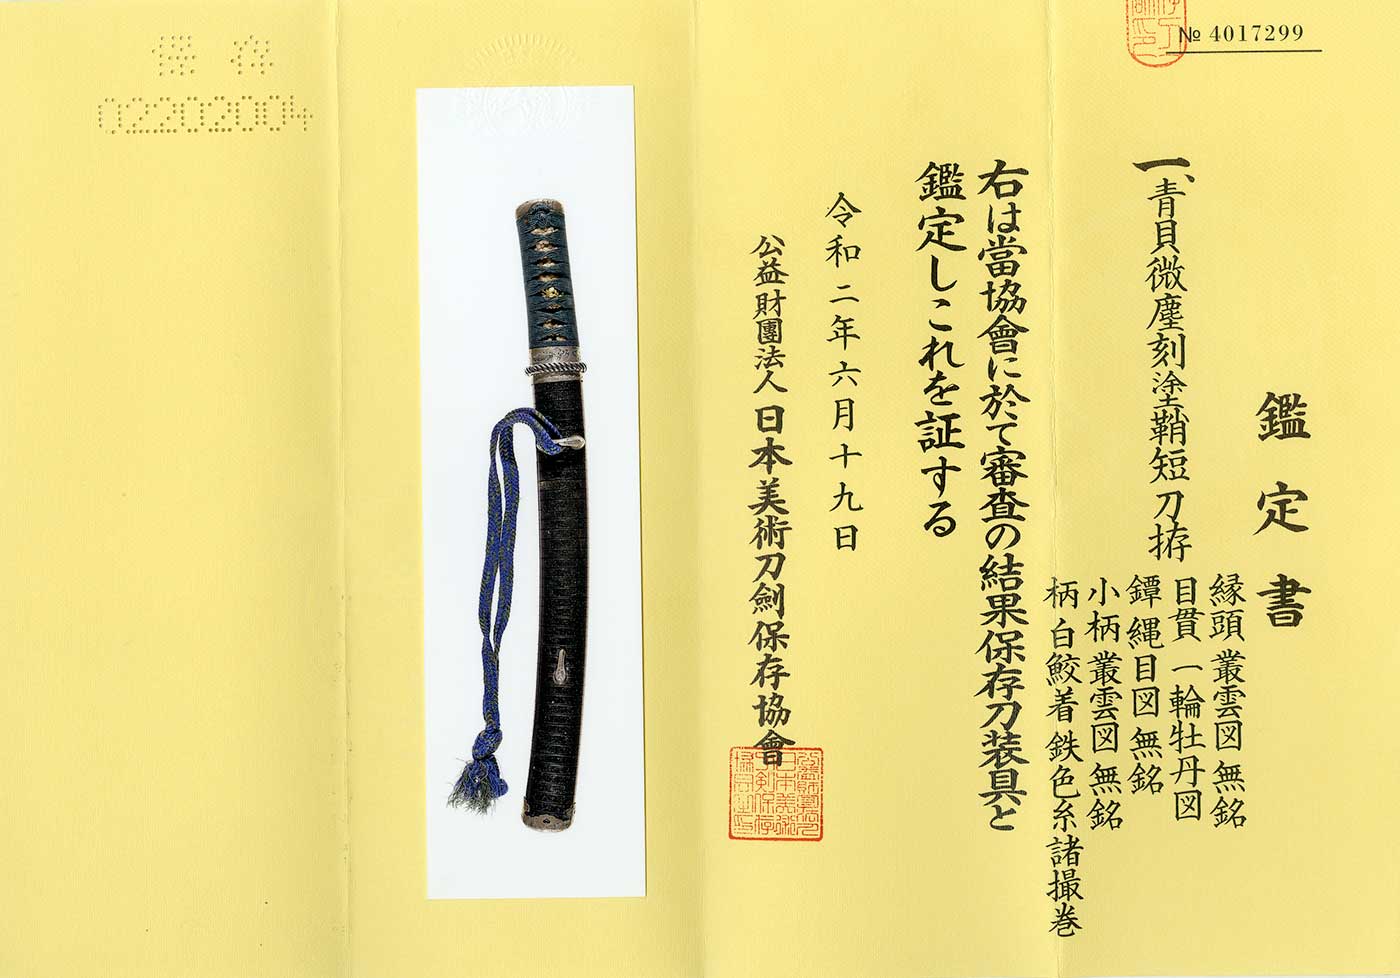 № 4017299
鑑定書
一、青貝微塵刻塗鞘短刀拵
縁頭 叢雲図 無銘
目貫 一輪牡丹図
鐔 縄目図 無銘
小柄 叢雲図 無銘
柄 白鮫着 鉄色糸諸撮巻
右は當協會に於て審査の結果保存刀装具と
鑑定しこれを証する
令和二年六月十九日
公益財團法人 日本美術刀劍保存協會
保存
02202004